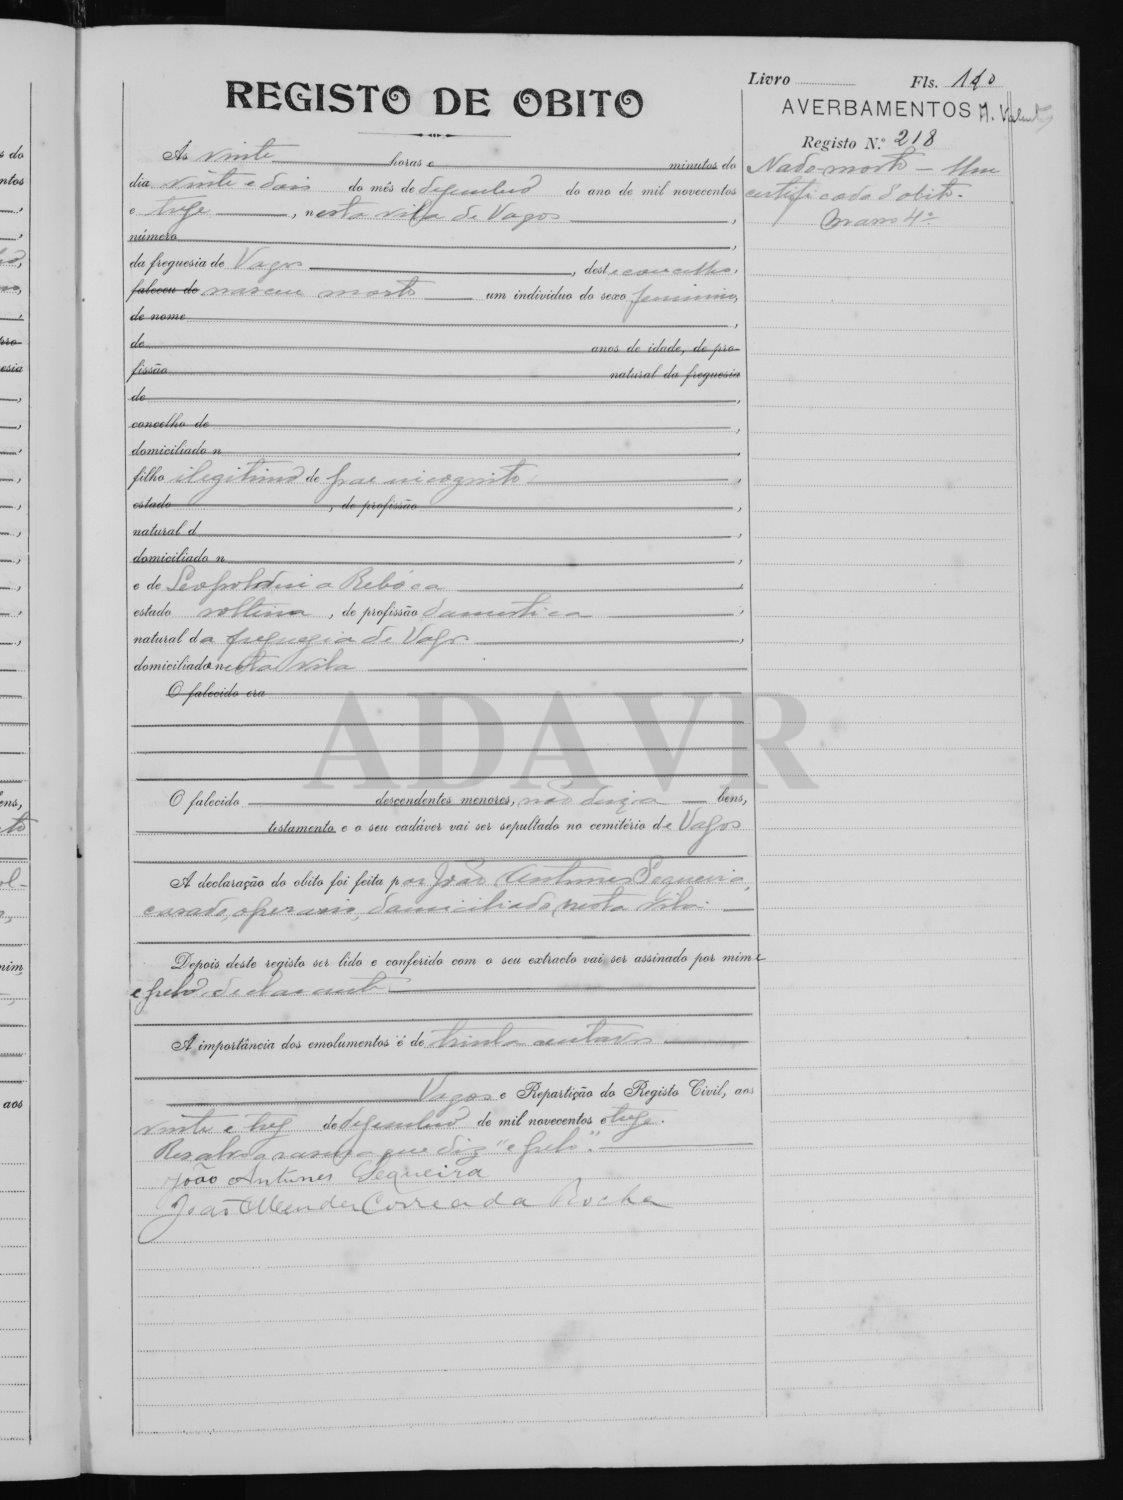 Livro Fls. 110
REGISTO DE OBITO
AVERBAMENTOS
Registo N.º 218
Nado-morto — Um
certificado d'obito.
Maço 4º
Ás vinte horas e minutos do
dia vinte e dois do mês de dezembro do ano de mil novecentos
e treze, nesta vila de Vagos,
número,
da freguesia de Vagos, deste concelho,
faleceu de nasceu morto um individuo do sexo feminino,
de nome,
de anos de idade, de pro-
fissão natural da freguesia
de,
concelho de,
domiciliado n,
filho ilegitimo de pae incognito,
estado, de profissão,
natural d,
domiciliado n
e de Leopoldina Rebóca,
estado solteira, de profissão domestica,
natural da freguezia de Vagos,
domiciliada nesta vila
O falecido era
ADAVR
O falecido descendentes menores, não deixa bens,
testamento e o seu cadáver vai ser sepultado no cemitério de Vagos
A declaração do obito foi feita por João Antunes Sequeira,
casado, operario, domiciliado nesta vila.
Depois deste registo ser lido e conferido com o seu extracto vai ser assinado por mim e
e pelo declarante
A importância dos emolumentos é de trinta centavos
Vagos e Repartição do Registo Civil, aos
vinte e trez de dezembro de mil novecentos e treze.
Resalvo a rasura que diz "e pelo".
João Antunes Sequeira
João Mendes Correa da Rocha